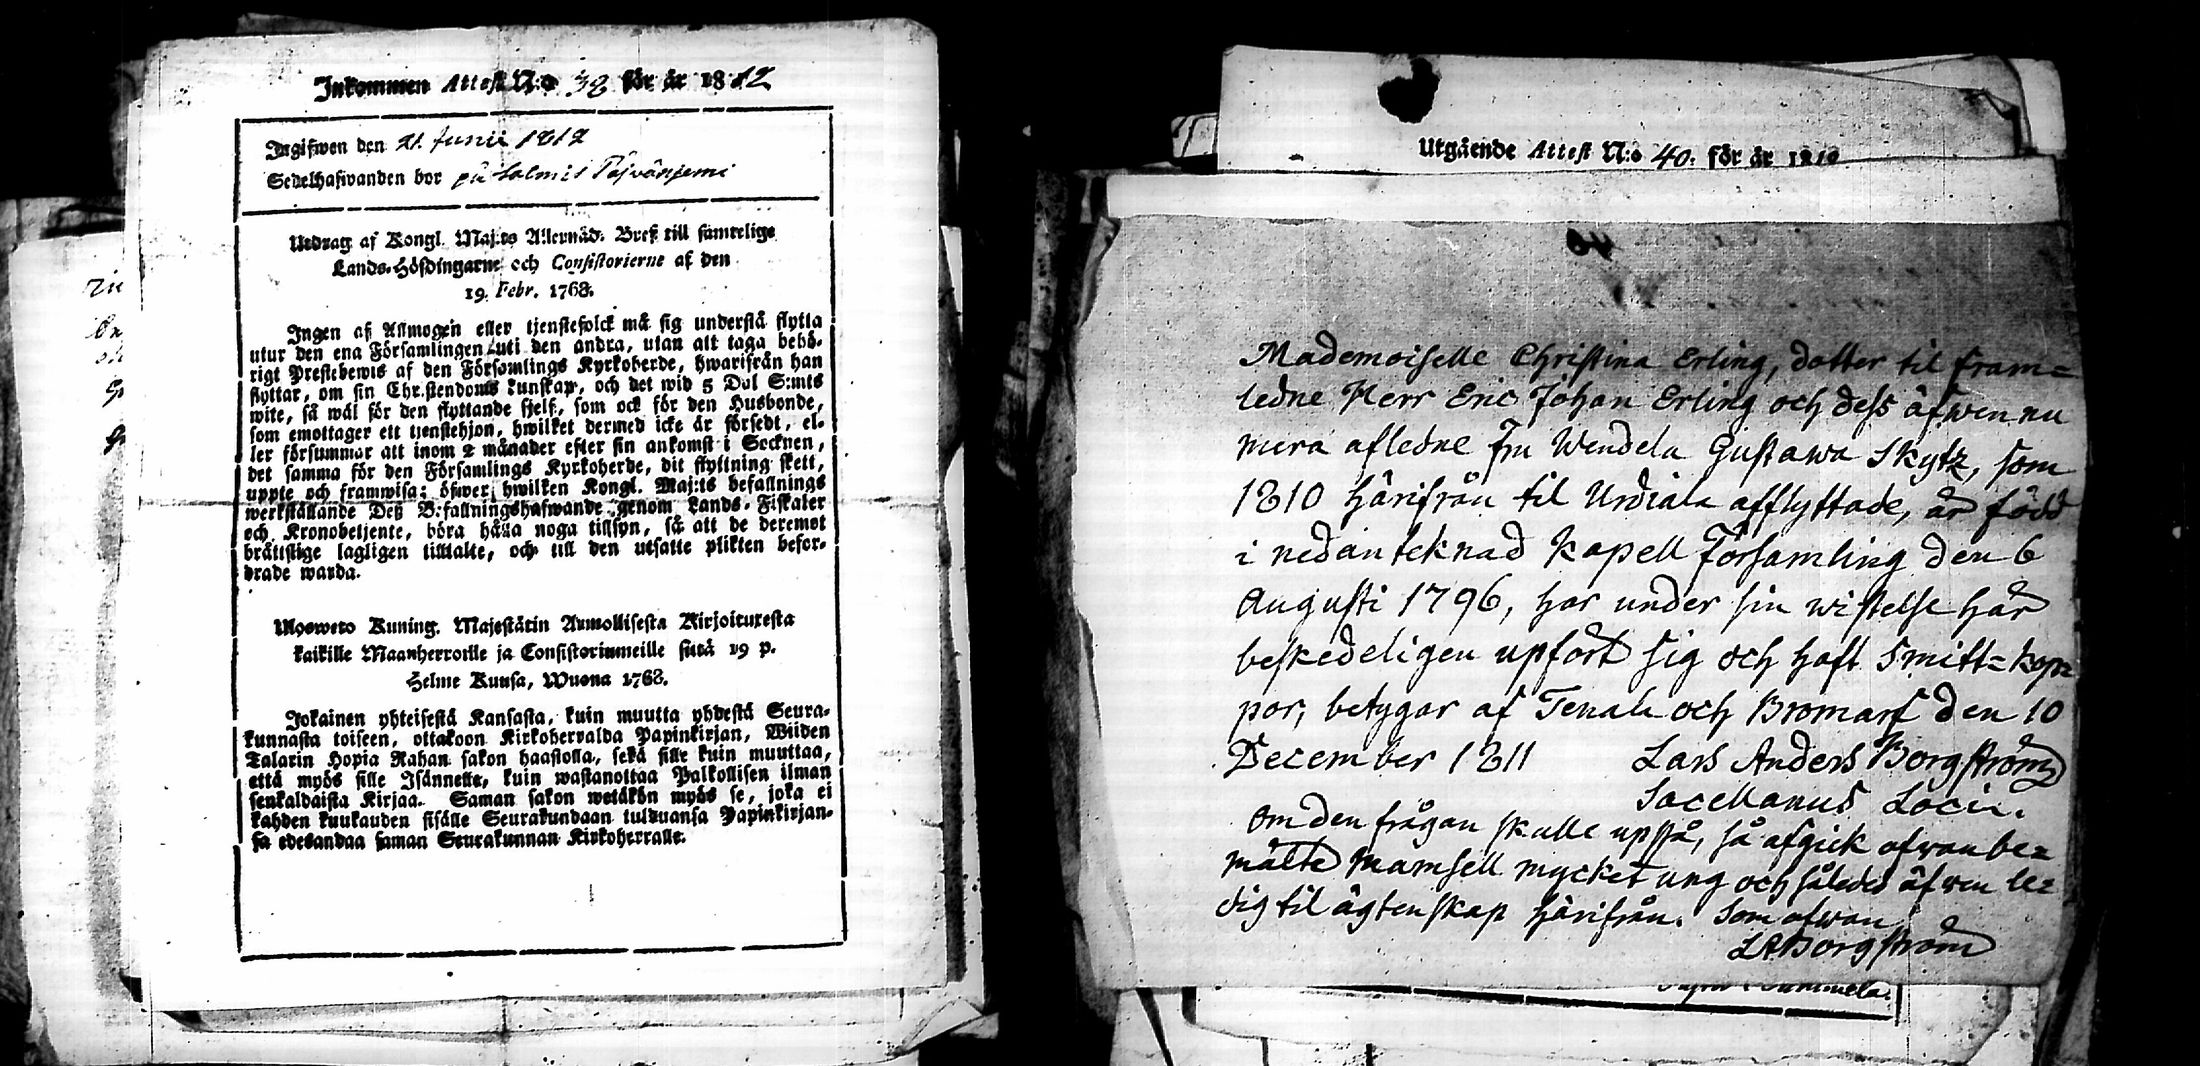 Inkommen Attest N:o 38 för år 1812
Ingifwen den 21 Junii 1812
Sedelhafwanden bor på Salmis
Utdrag af Kongl. Maj:ts Allernåd. Bref till samtelige
Lands-Höfdingarne och Consistorierne af den
19. Febr. 1768.
Ingen af Allmogen eller tjenstefolck må sig understå flytta
utur den ena Församlingen uti den andra, utan att taga behö-
rigt Prestebewis af den Församlings Kyrkoherde, hwarifrån han
flyttar, om sin Christendoms kunskap, och det wid 5 Dal S:mts
wite, så wäl för den flyttande sjelf, som ock för den Husbonde,
som emottager ett tjenstehjon, hwilket dermed icke är försedt, el-
ler försummar att inom 2 månader efter sin ankomst i Socknen,
det samma för den Församlings Kyrkoherde, dit flyttning skett,
uppte och framwisa; öfwer hwilken Kongl. Maj:ts befallnings
werkställande Deß Befallningshafwande genom Lands-Fiskaler
och Kronobetjente, böra hålla noga tillsyn, så att de deremot
bråttslige lagligen tilltalte, och till den utsatte plikten befor-
drade warda.
Ulosweto Kuning. Majestätin Armollisesta Kirjoituxesta
kaikille Maanherroille ja Consistoriumeille siitä 19 p.
Helme Kuusa, Wuona 1768.
Jokainen yhteisestä Kansasta, kuin muutta yhdestä Seura-
kunnasta toiseen, ottakoon Kirkoherralda Papinkirjan, Wiiden
Talarin Hopia Rahan sakon haastolla, sekä sille kuin muuttaa,
että myös sille Isännelle, kuin wastanottaa Palkollisen ilman
senkaldaista Kirjaa. Saman sakon wetäkön myös se, joka ei
kahden kuukauden sisälle Seurakundaan tulduansa Papinkirjan-
sa edesandaa saman Seurakunnan Kirkoherralle.
Utgående Attest N:o 40. för år 1810
40
Mademoiselle Christina Erling, dotter til fram=
ledne Herr Eric Johan Erling och dess äfwen nu
mera afledne Fru Wendela Gustawa Skytz, som
1810 härifrån til Urdiala afflyttade, är född
i nedanteknad Kapell Församling den 6
Augusti 1796, har under sin wistelse här
beskedeligen upfört sig och haft Smitt=kop=
por, betygar af Tenala och Bromarf den 10
December 1811 Lars Anders Borgström
Sacellanus Loci.
Om den frågan skulle upstå, så afgick ofwanbe=
mälte Mamsell mycket ung och således äfwen le=
dig til ägtenskap härifrån. Som ofwan
LABorgström